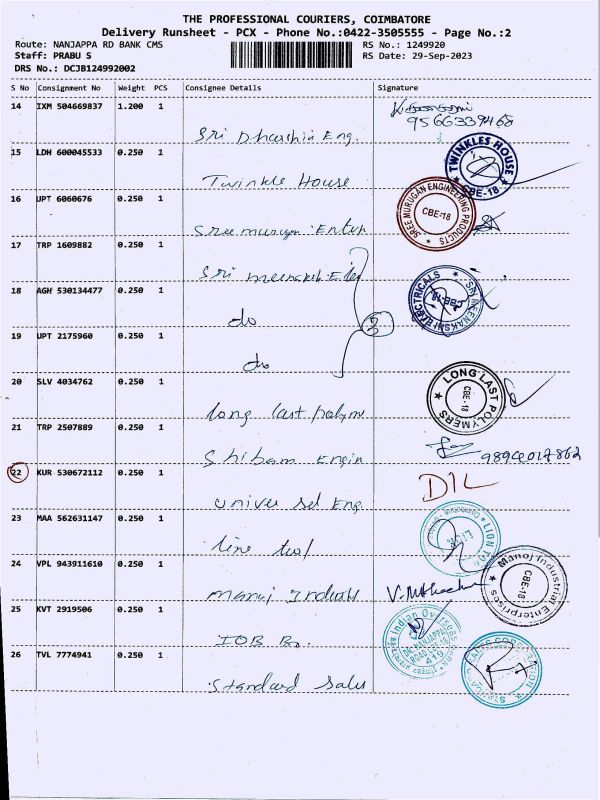 THE PROFESSIONAL COURIERS, COIMBATORE
Delivery Runsheet - PCX - Phone No.:0422-3505555 - Page No.:2
Route: NANJAPPA RD BANK CMS RS No.: 1249920
Staff: PRABU S RS Date: 29-Sep-2023
DRS No.: DCJB124992002
S No Consignment No Weight PCS Consignee Details Signature
14 IXM 504669837 1.200 1
9566339468
Sri Dharshin Eng.
15 LDH 600045533 0.250 1
TWINKLES HOUSE
CBE-18
Twinkle House
16 UPT 6060676 0.250 1
SREE MURUGAN ENGINEERING PRODUCTS
CBE-18
Sree murugan Enter
17 TRP 1609882 0.250 1
Sri meenakshi Ele
18 AGH 530134477 0.250 1
SRI MEENAKSHI ELECTRICALS
CBE-18
do
3
19 UPT 2175960 0.250 1
do
20 SLV 4034762 0.250 1
LONG LAST POLYMERS
CBE-18
long last polym
21 TRP 2507889 0.250 1
Shibam Engin
22 KUR 530672112 0.250 1
DIL
Universal Eng.
23 MAA 562631147 0.250 1
LION
24 VPL 943911610 0.250 1
Manoj Industrial Enterprises
CBE-18
manoj Industri
25 KVT 2919506 0.250 1
Indian Overseas
419
IOB Br.
26 TVL 7774941 0.250 1
Standard Sales